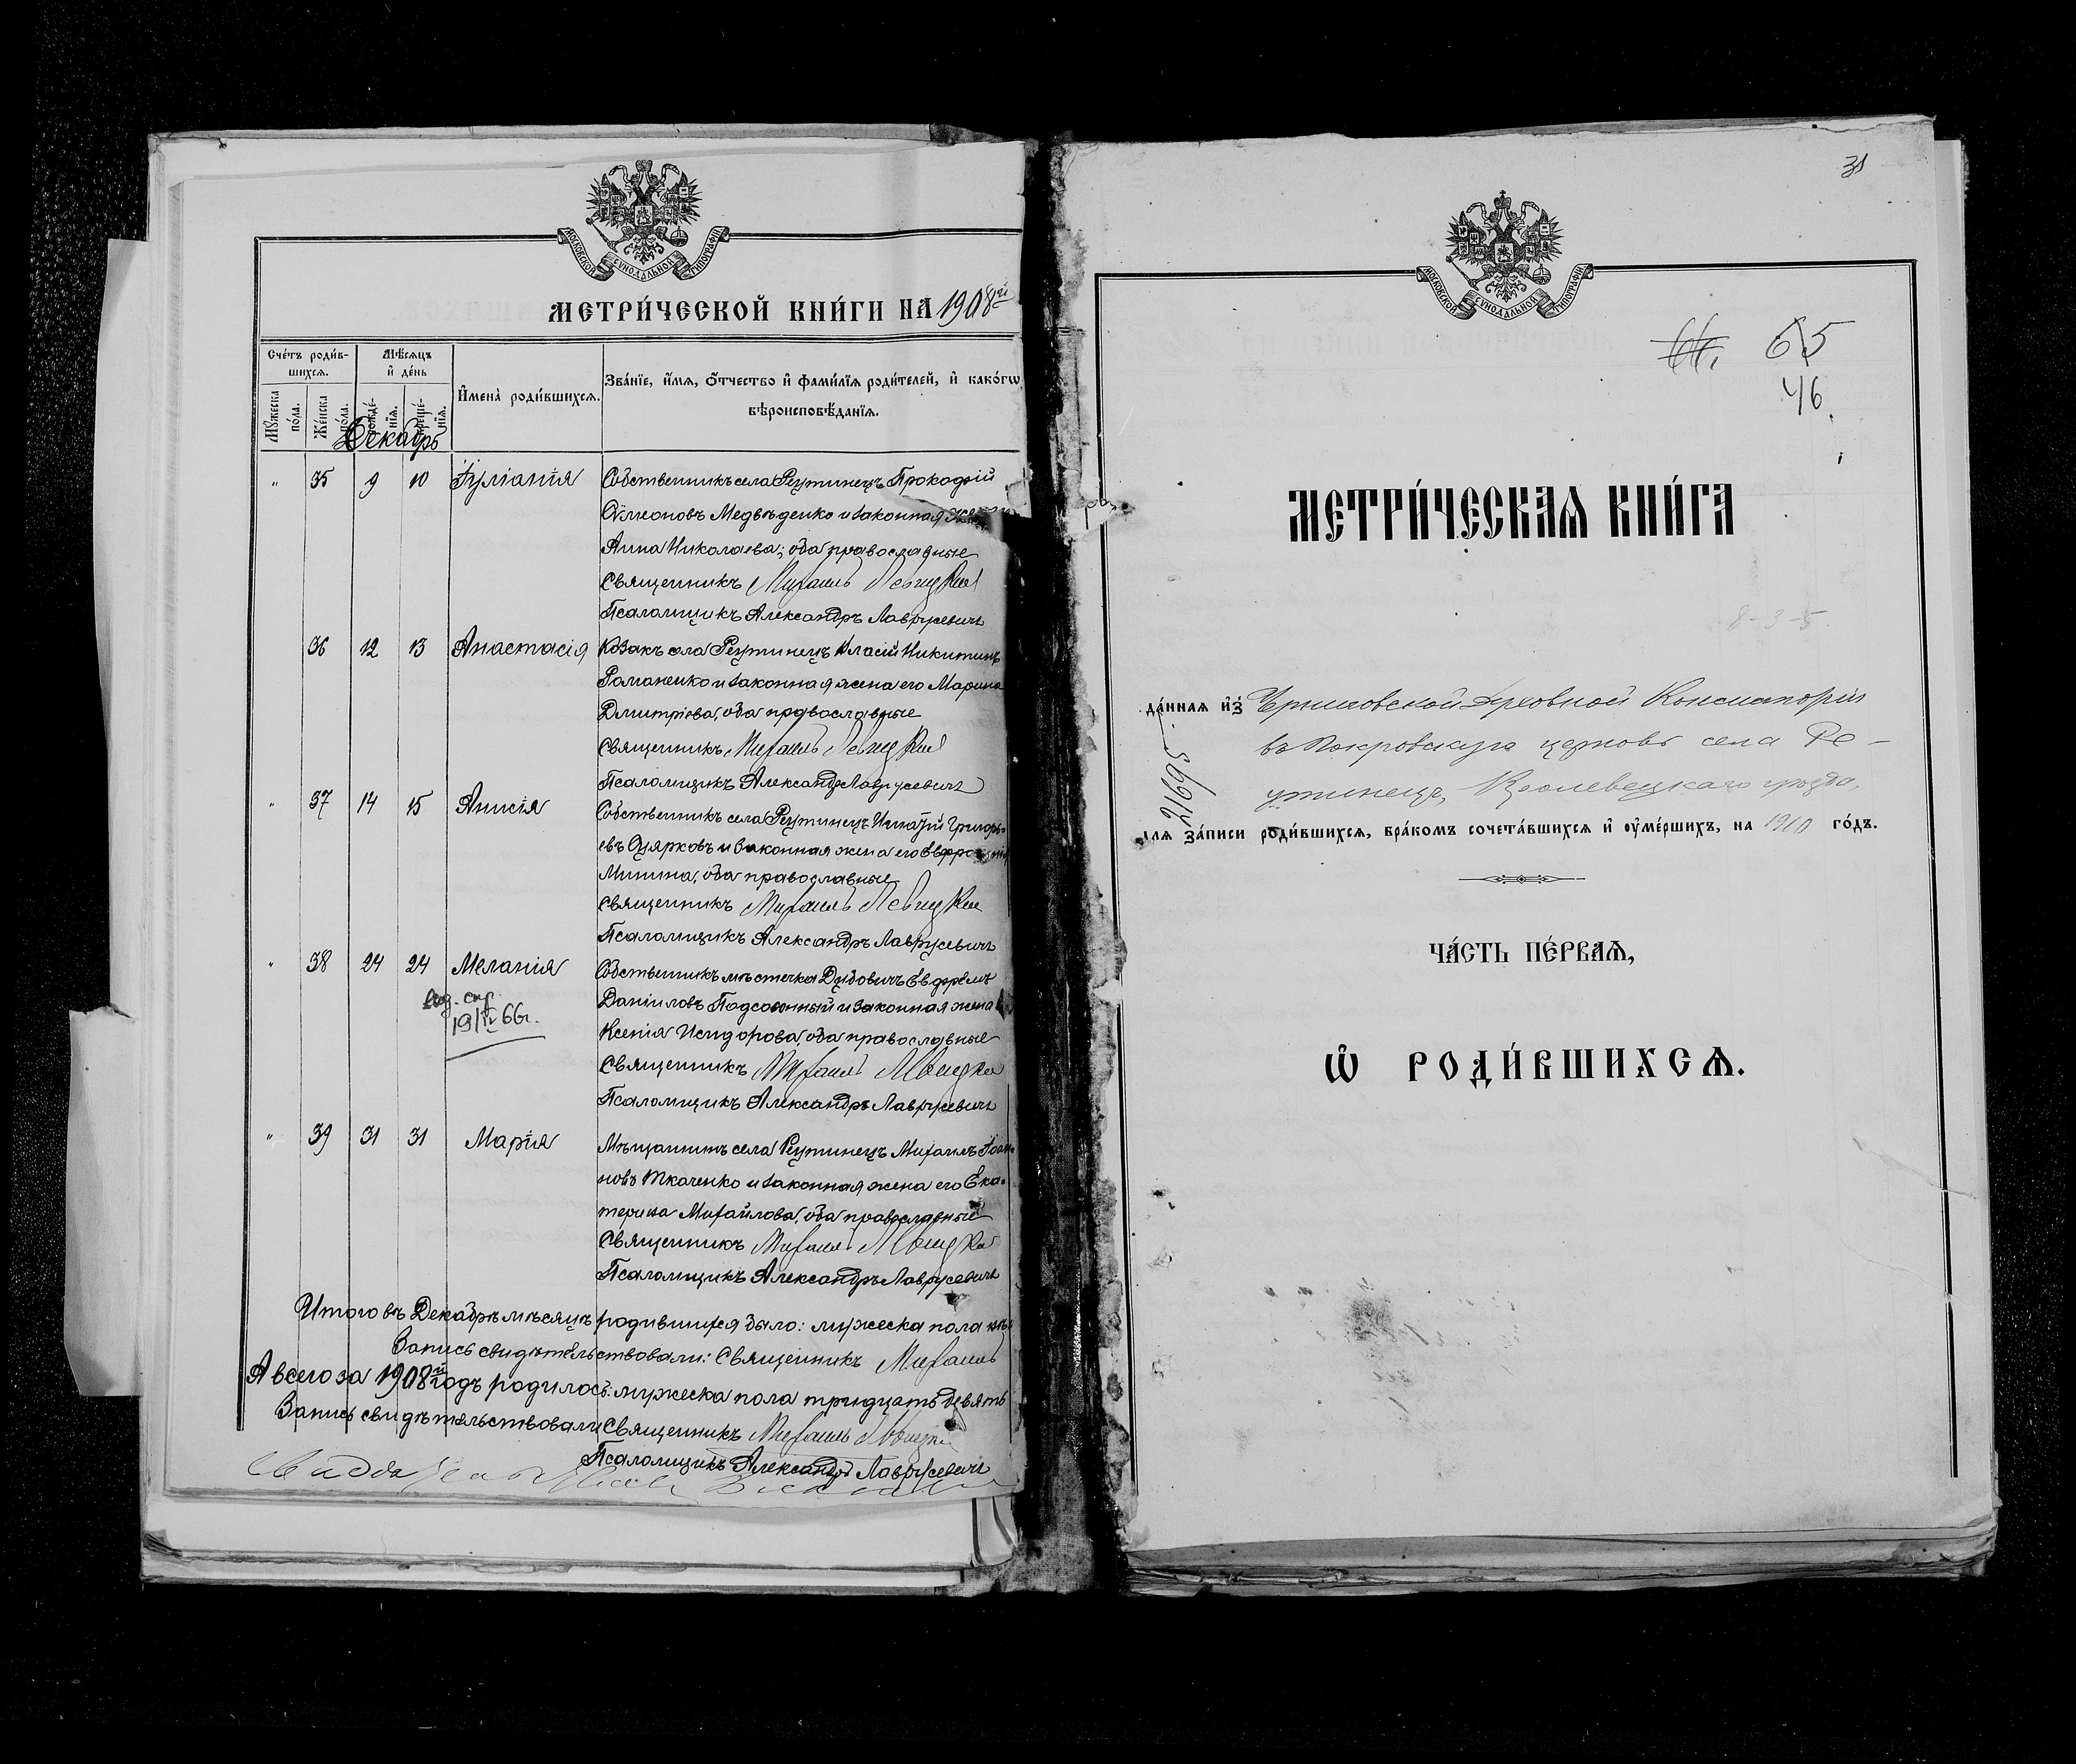 МОСКОВСКОЙ СУНОДАЛЬНОЙ ТИПОГРАФІИ
МЕТРИ́ЧЕСКОЙ КНИ́ГИ НА 1908й
Сче́тъ роди́в-
шихсѧ.
Мѣ́сѧцъ
и҆ де́нь
И҆мена̀ роди́вшихсѧ.
Зва́нїе, и҆́мѧ, ѻ҆́тчество и҆ фами́лїѧ роди́телей, и҆ како́гѡ
вѣроисповѣ́данїѧ.
Мꙋ́жеска по́ла.
Же́нска по́ла.
рожде́-нїѧ.
креще́-нїѧ.
Декабрь
" 35 9 10 Іуліанія Собственникъ села Реутинецъ Прокофій
Сѵмеоновъ Медвѣденко и законная жена
Анна Николаева, оба православные
Священникъ Михаилъ Левицкій
Псаломщикъ Александръ Лаврусевичъ
36 12 13 Анастасія Козакъ села Реутинецъ Власій Никитинъ
Романенко и законная жена его Марина
Дмитріева, оба православные
Священникъ Михаилъ Левицкій
Псаломщикъ Александръ Лаврусевичъ
" 37 14 15 Анисія Собственникъ села Реутинецъ Игнатій Григорь-
евъ и законная жена его
Минина, оба православные
Священникъ Михаилъ Левицкій
Псаломщикъ Александръ Лаврусевичъ
" 38 24 24 Меланія Собственникъ мѣстечка Дубовичъ Евфремъ
Даніиловъ и законная жена
Ксенія Исидорова, оба православные
Священникъ Михаилъ Левицкій
Псаломщикъ Александръ Лаврусевичъ
выд. спр.
19/IV 66г.
" 39 31 31 Марія Мѣщанинъ села Реутинецъ Михаилъ Іоан-
новъ Ткаченко и законная жена его Ека-
терина Михайлова, оба православные
Священникъ Михаилъ Левицкій
Псаломщикъ Александръ Лаврусевичъ
Итого въ Декабрѣ мѣсяцѣ родившихся было: мужеска пола
Запись свидѣтельствовали: Священникъ Михаилъ
А всего за 1908й годъ родилось: мужеска пола тридцать девять
Запись свидѣтельствовали Священникъ Михаилъ Левицкій
Псаломщикъ Александръ Лаврусевичъ
31
МОСКОВСКОЙ СУНОДАЛЬНОЙ ТИПОГРАФІИ
65
46.
МЕТРИ́ЧЕСКАѦ КНИ́ГА
8-3-5
да́ннаѧ и҆з̾ Черниговской Духовной Консисторіи
въ Покровскую церковь села Ре-
утинецъ, Кролевецкаго уѣзда,
21695
длѧ за́писи роди́вшихсѧ, бра́комъ сочета́вшихсѧ и҆ ᲂу҆ме́ршихъ, на 1910 го́дъ.
ЧА́СТЬ ПЕ́РВАѦ,
Ѡ҆ РОДИ́ВШИХСѦ.